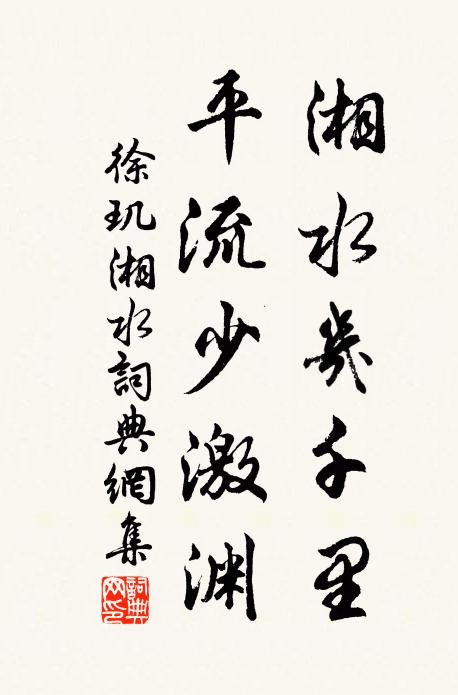 湘水幾千里
平流少激渊
徐玑湘水詞典網集
詞典网印